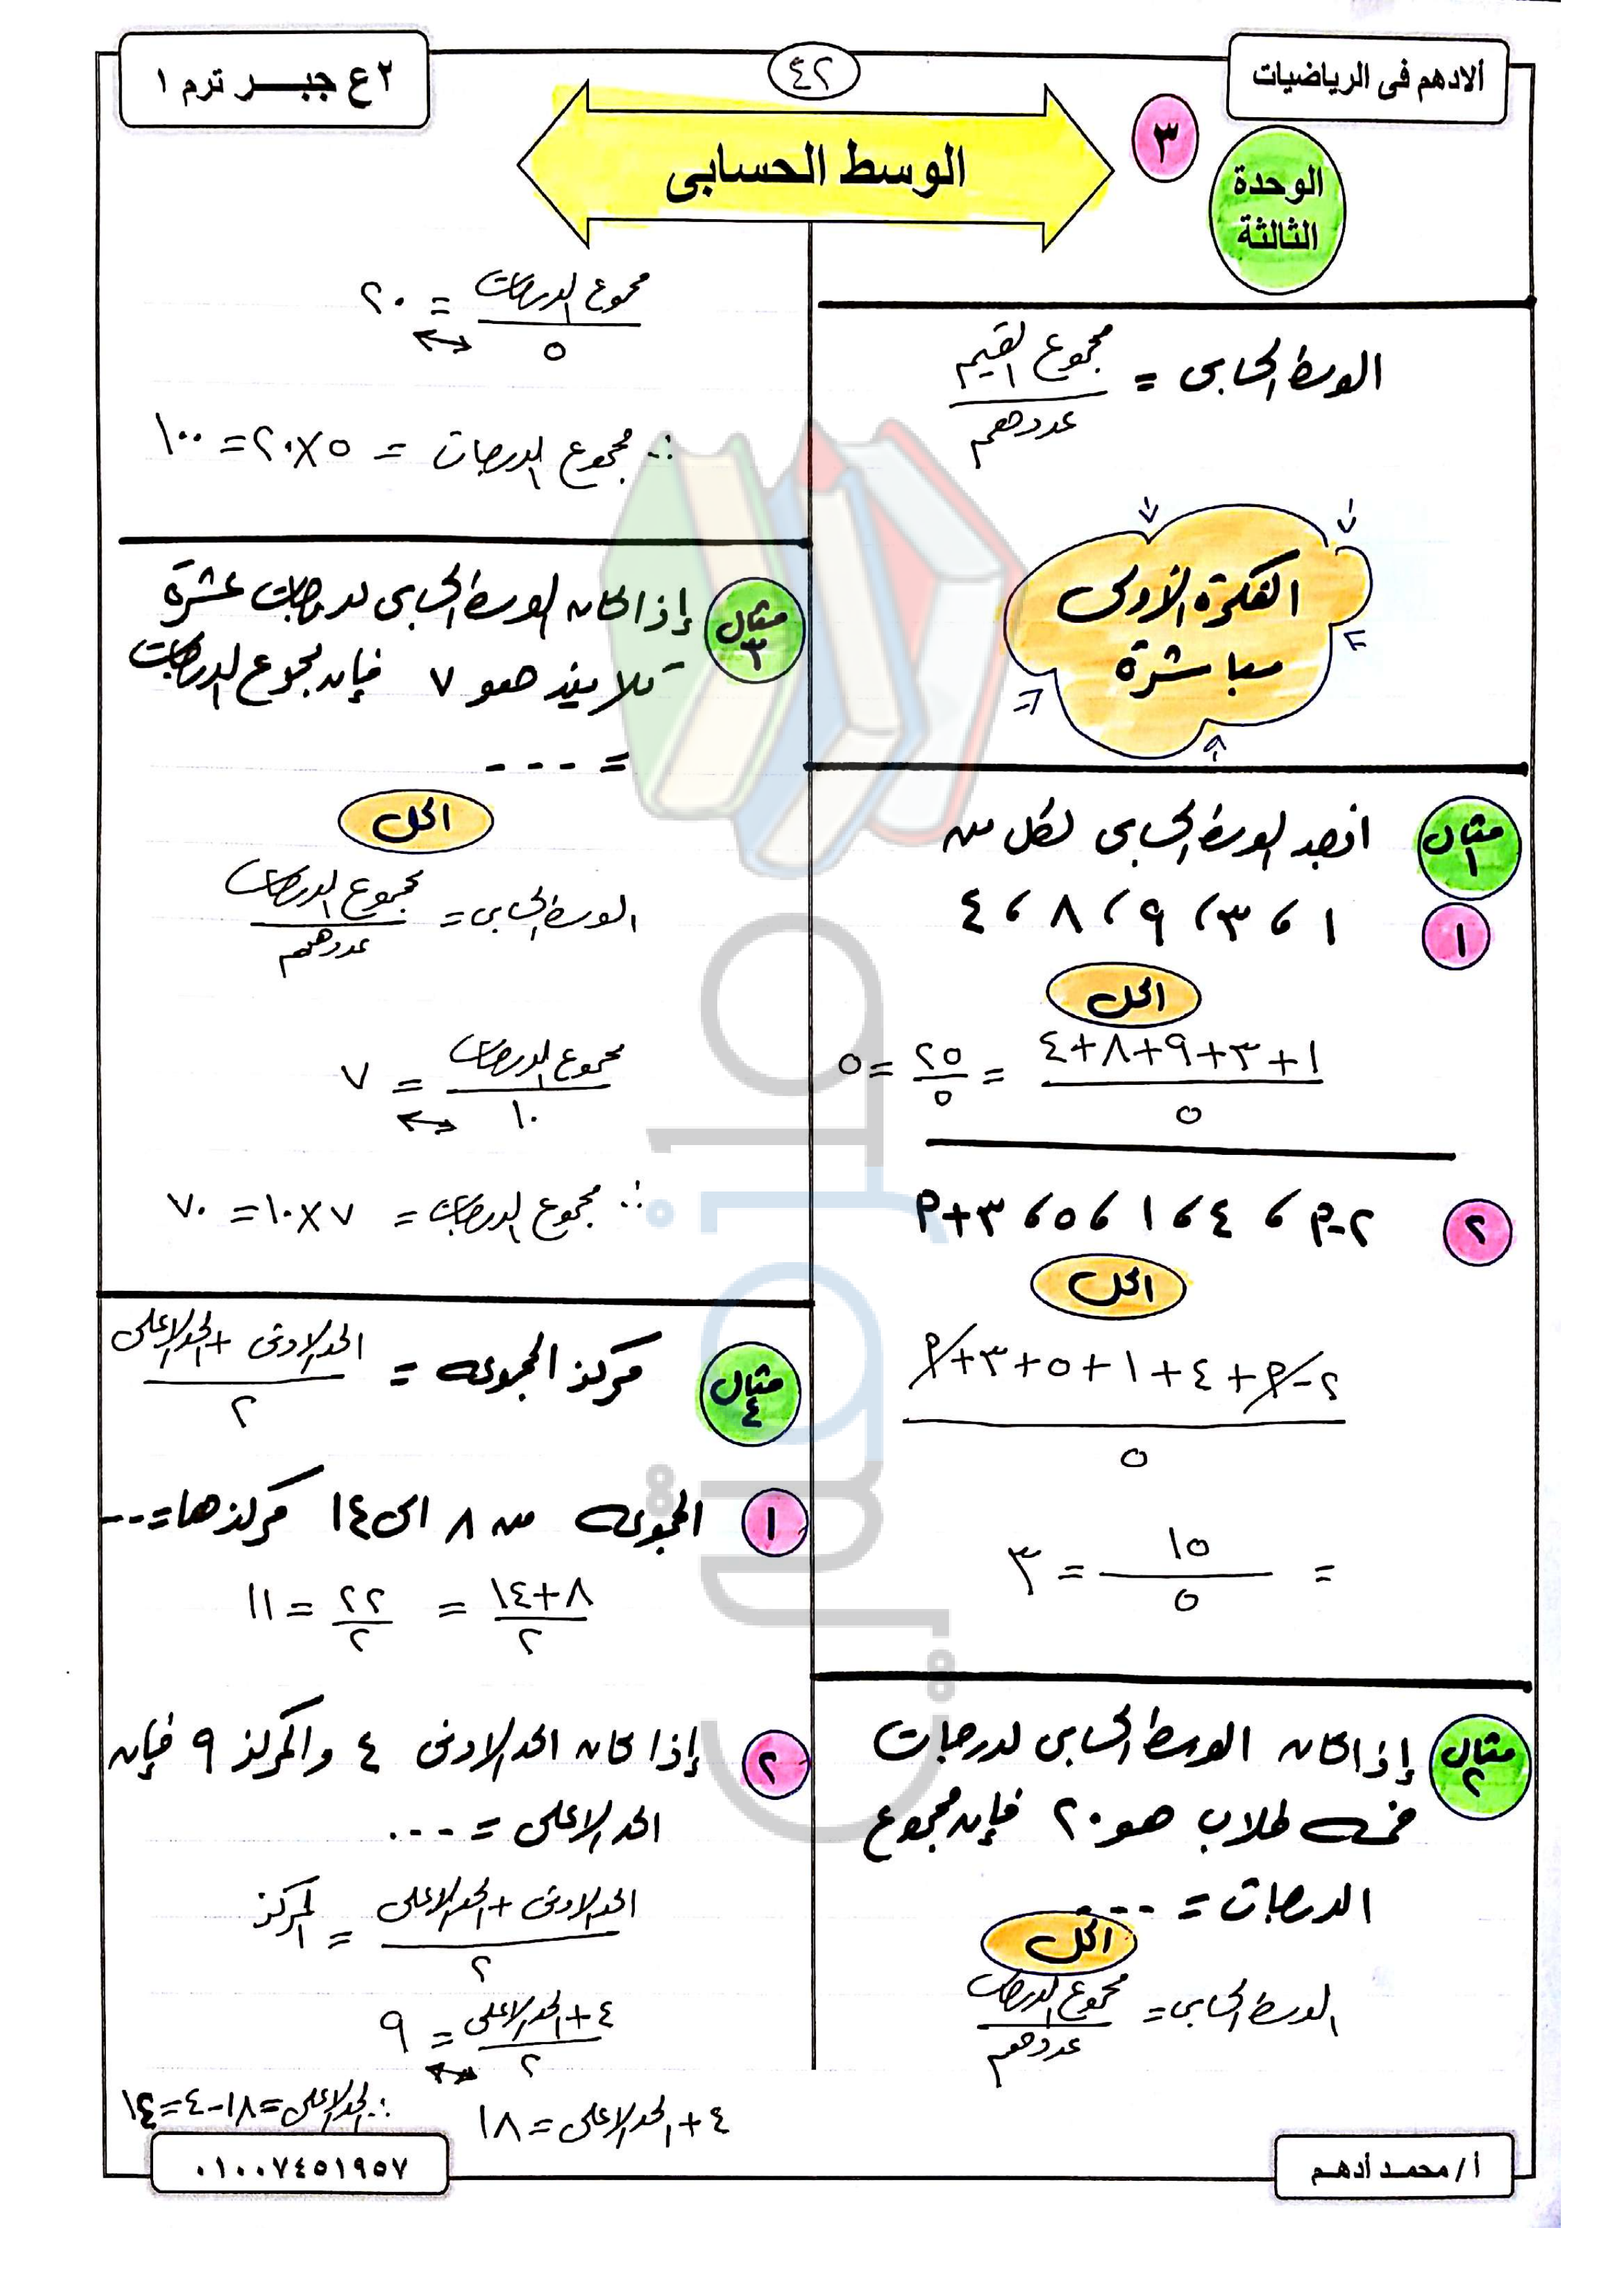 ألادهم فى الرياضيات
٤٢
٢ ع جبـــر ترم ١
الوحدة
الثالثة
٣
الوسط الحسابى
الوسط الحسابى = مجموع القيم / عددهم
الفكرة الأولى
مباشرة
مثال ١
اوجد الوسط الحسابى لكل من
١ ١ ، ٣ ، ٩ ، ٨ ، ٤
الحل
١+٣+٩+٨+٤ / ٥ = ٢٥ / ٥ = ٥
٢ ٢-م ، ٤ ، ١ ، ٥ ، ٣+م
الحل
٢-م+٤+١+٥+٣+م / ٥
= ١٥ / ٥ = ٣
مثال ٢
إذا كان الوسط الحسابى لدرجات
خمسة طلاب هو ٢٠ فإن مجموع
الدرجات = ---
الحل
الوسط الحسابى = مجموع الدرجات / عددهم
مجموع الدرجات / ٥ = ٢٠
∴ مجموع الدرجات = ٥×٢٠ = ١٠٠
مثال ٣
إذا كان الوسط الحسابى لدرجات عشرة
تلاميذ هو ٧ فإن مجموع الدرجات
= ---
الحل
الوسط الحسابى = مجموع الدرجات / عددهم
مجموع الدرجات / ١٠ = ٧
∴ مجموع الدرجات = ٧×١٠ = ٧٠
مثال ٤
مركز المجموعة = الحد الادنى + الحد الاعلى / ٢
١ المجموعة من ٨ الى ١٤ مركزها = --
٨+١٤ / ٢ = ٢٢ / ٢ = ١١
٢ إذا كان الحد الادنى ٤ والمركز ٩ فإن
الحد الاعلى = ---
الحد الادنى + الحد الاعلى / ٢ = المركز
٤ + الحد الاعلى / ٢ = ٩
٤ + الحد الاعلى = ١٨
∴ الحد الاعلى = ١٨-٤ = ١٤
أ / محمــد أدهــم
٠١٠٠٧٤٥١٩٥٧